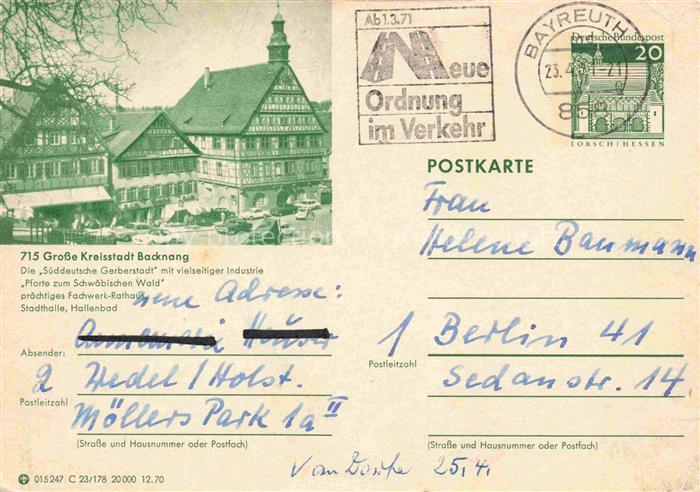 Ab 1.3.71
Neue
Ordnung
im Verkehr
BAYREUTH
23.4.
Deutsche Bundespost
20
LORSCH/HESSEN
POSTKARTE
Frau
Helene Baumann
1 Berlin 41
Postleitzahl
Sedanstr. 14
(Straße und Hausnummer oder Postfach)
715 Große Kreisstadt Backnang
Die „Süddeutsche Gerberstadt" mit vielseitiger Industrie
„Pforte zum Schwäbischen Wald"
prächtiges Fachwerk-Rathaus
Stadthalle, Hallenbad
neue Adresse:
Absender:
2 Wedel/Holst.
Postleitzahl
Möllers Park 1a II
(Straße und Hausnummer oder Postfach)
015247 C 23/178 20000 12.70
25.4.